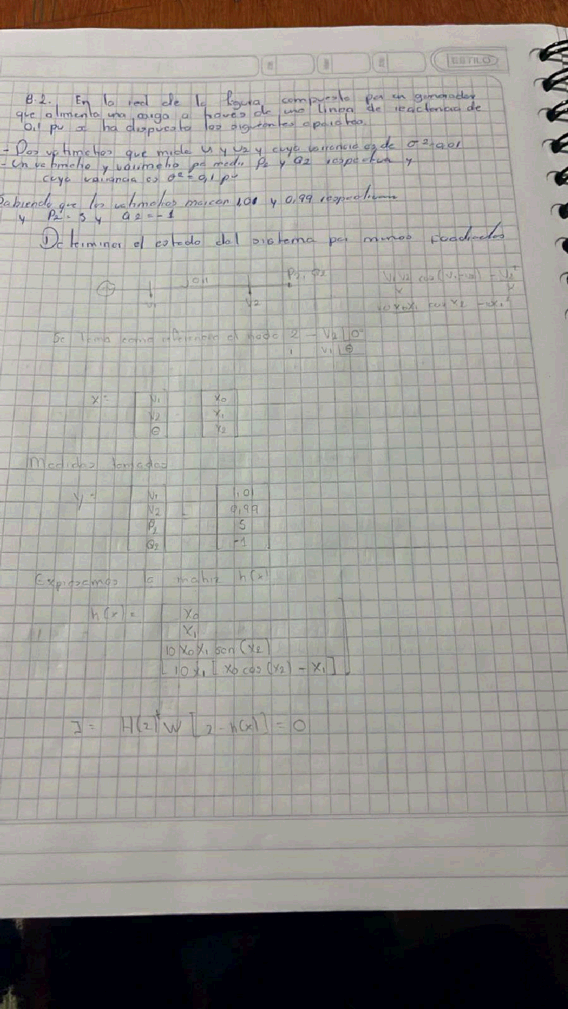 ESTILO
8.2. En la red de la figura, compuesta por un generador
que alimenta una carga a traves de una linea de reactancia de
0,1 pu se ha dispuesto los siguientes aparatos.
- Dos voltimetros que mide V1 y V2 y cuya varianza es de σ²=0,01
- Un vatimetro y varimetro pa medir P2 y Q2 respectiva y
cuya varianza es σ²=0,1 pu
Sabiendo que los voltimetros marcan 1,01 y 0,99 respectivam
y P2=5 y Q2=-1
Determinar el estado del sistema por minimos cuadrados
J0,1
P2, Q2
V1
V2
10 x0x1 cos x2 - 10x1²
Se toma como referencia el nodo 2 - V2 |0°
V1 |θ
x = V1 x0
V2 x1
θ x2
Medidas tomadas
y = V1 1,01
V2 = 0,99
P2 5
Q2 -1
Expresamos la matriz h(x)
h(x) = x0
x1
10 x0 x1 sen(x2)
10 x1 [x0 cos(x2) - x1]
J = H(2)ᵗ W [2 - h(x)] = 0